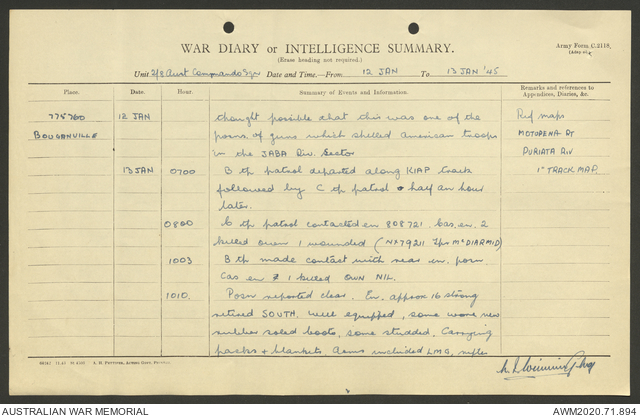 WAR DIARY or INTELLIGENCE SUMMARY.
Army Form C.2118.
(Erase heading not required.)
Unit 2/8 Aust Commando Sqn Date and Time—From 12 JAN To 13 JAN '45
Place. Date. Hour. Summary of Events and Information. Remarks and references to Appendices, Diaries, &c.
775760 12 JAN thought possible that this was one of the Ref maps
BOUGANVILLE posns. of guns which shelled American troops MOTUPENA PT
in the JABA Riv. Sector PURIATA RIV
13 JAN 0700 B tp patrol departed along KIAP track 1" TRACK MAP.
followed by C tp patrol half an hour
later.
0800 C tp patrol contacted en 808721. Cas. en. 2
killed own 1 wounded (NX79211 Tpr McDIARMID)
1003 B tp made contact with en. posn
Cas en 1 killed OWN NIL.
1010. Posn reported clear. En. approx 16 strong
retired SOUTH. Well equipped, some wore new
rubber soled boots, some studded, Carrying
packs & blankets, Arms included LMG, rifles
AUSTRALIAN WAR MEMORIAL
AWM2020.71.894